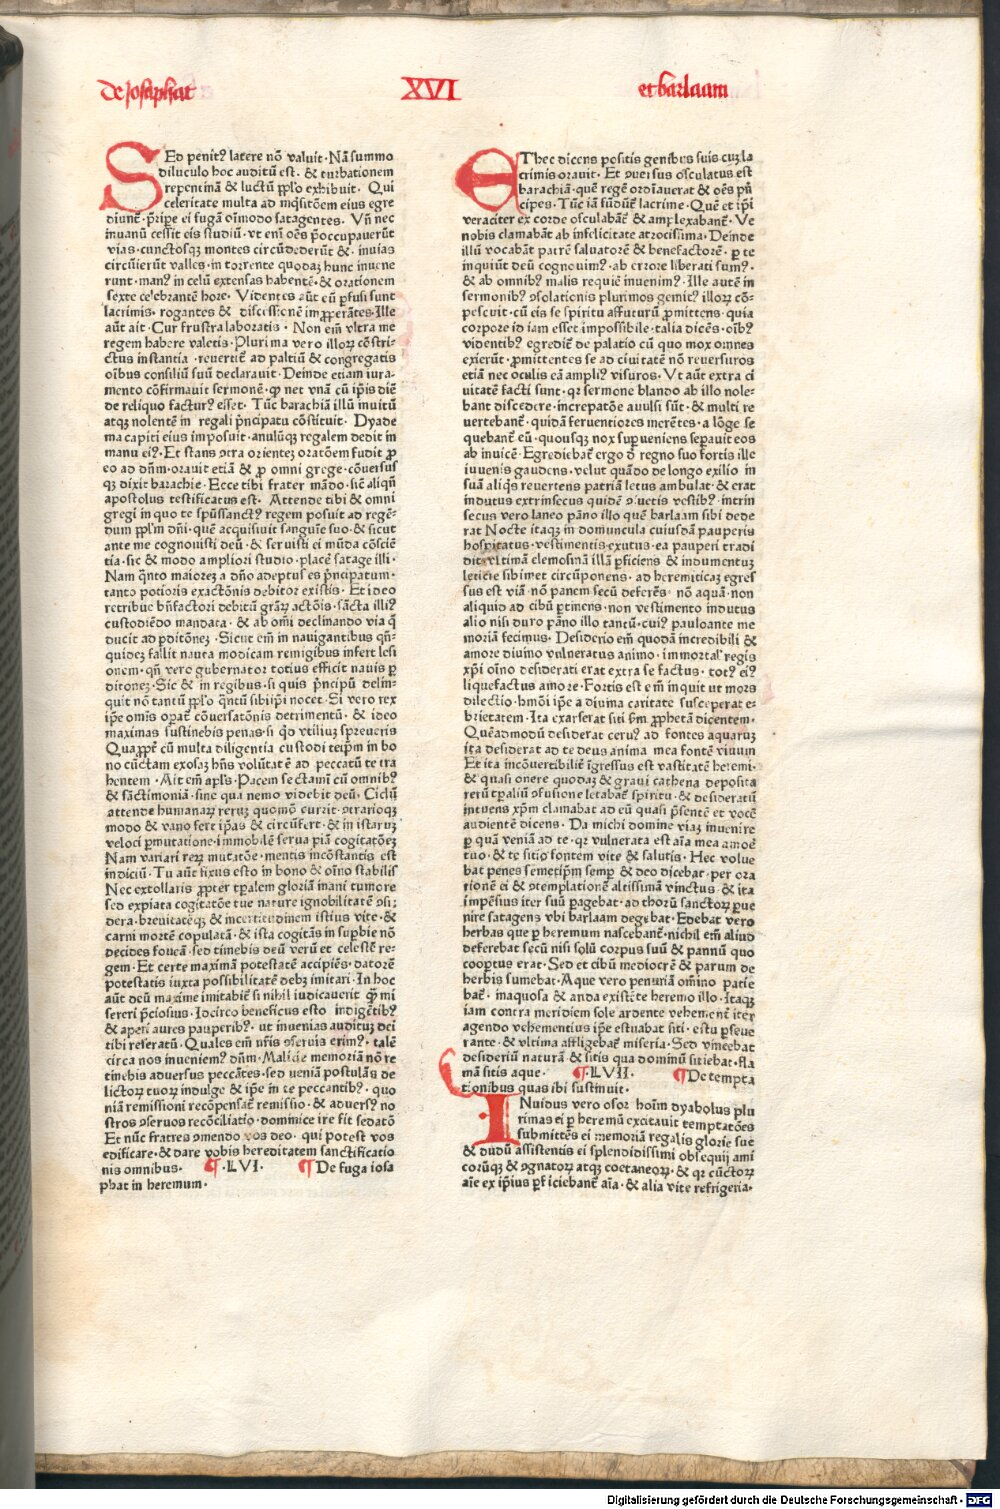 de Josaphat XVI et barlaam
SEd penit⁹ latere nō valuit · Nā summo
diluculo hoc auditū est · & turbationem
repentinā & luctū ꝓplo exhibuit · Qui
celeritate multa ad inq̄sitōem eius egre
diunt᷑ · p̄ripe ei fugā oīmodo satagentes · Vn̄ nec
inuanū cessit eis studiū · vt enī oēs p̄occupauerūt
vias · cunctosqꝫ montes circūdederūt & · inuias
circūierūt valles · in torrente quodaꝫ hunc inuene
runt · man⁹ in celū extensas habentē · & orationem
sexte celebrantē hore · Videntes aūt eū ꝑfusi sunt
lacrimis · rogantes & discessionē imꝓperātes · Ille
aūt ait · Cur frustra laboratis · Non em̄ vltra me
regem habere valetis · Plurima vero illoꝝ cōstri-
ctus instantia · reuertit᷑ ad paltiū & congregatis
oībus consiliū suū declarauit · Deinde etiam iura-
mento cōfirmauit sermonē · ꝙ net vnā cū ip̄is diē
de reliquo factur⁹ esset · Tūc barachiā illū inuitū
atqꝫ nolentē in regali p̄ncipatu cōstituit · Dyade
ma capiti eius imposuit · anulūqꝫ regalem dedit in
manu ei⁹ · Et stans ꝯtra orienteꝫ oratōem fudit ꝓ
eo ad dn̄m · orauit etiā & ꝓ omni grege · cōuersus
qꝫ dixit barachie · Ecce tibi frater mādo · sic̄ aliqn̄
apostolus testificatus est · Attende tibi & omni
gregi in quo te spūssanct⁹ regem posuit ad regē-
dum ꝓplm dn̄i · quē acquisiuit sanguīe suo · & sicut
ante me cognouisti deū · & seruisti ei mūda cōsciē
tia · sic & modo ampliori studio · placē satage illi ·
Nam q̄nto maioreꝫ a dn̄o adeptus es p̄ncipatum ·
tanto potioris exactōnis debitor existis · Et ideo
retribue bn̄factori debitū grāꝝ actōis · sācta illi⁹
custodiēdo mandata · & ab om̄i declinando via q̄
ducit ad ꝑditōneꝫ · Sicut em̄ in nauigantibus qn̄-
quideꝫ fallit nauta modicam remigibus infert lesi
onem · qn̄ vero gubernator totius efficit nauis ꝑ
ditoneꝫ · Sic & in regibus · si quis p̄ncipū delin-
quit nō tantū ꝓplo q̄ntū sibiip̄i nocet · Si vero rex
ip̄e om̄is oꝑat᷑ cōuersatōnis detrimentū · & ideo
maximas sustinebis penas · si q̄o vtilius spreueris
Quaꝓpt᷑ cū multa diligentia custodi teip̄m in bo
no cūctam exosaꝫ hn̄s volūtatē ad peccatū te tra
hentem · Ait em̄ apl̄s · Pacem sectamī cū omnib⁹
& sāctimoniā · sine qua nemo videbit deū · Ciclū
attende humanaꝝ rerum quomō currit · ꝯtrarioqꝫ
modo & vano fert ip̄as & circūfert · & in istaruꝫ
veloci ꝑmutatione · immobilē serua piā cogitatōeꝫ
Nam variari reꝝ mutatōe · mentis incōstantis est
indiciū · Tu aūt fixus esto in bono & oīno stabilis
Nec extollaris ꝓpter tꝑalem gloriā inani tumore
sed expiata cogitatōe tue nature ignobilitatē ꝯsi;
dera · breuitatēqꝫ & incertitudinem istius vite · &
carni mortē copulatā · & ista cogitās in suꝑbie nō
decides foueā · sed timebis deū verū et celestē re-
gem · Et certe maximā potestatē accipiēs · datorē
potestatis iuxta possibilitatē debꝫ imitari · In hoc
aūt deū maxime imitabit᷑ si nihil iudicauerit q̄ꝫ mi
sereri p̄ciosius · Idcirco beneficus esto indigētib⁹
& aperi aures pauperib⁹ · ut inuenias audituꝫ dei
tibi reseratū · Quales em̄ nr̄is ꝯseruis erim⁹ · talē
circa nos inueniem⁹ dn̄m · Malicie memoriā nō re
tinebis aduersus peccātes · sed veniā postulās de
lictoꝝ tuoꝝ indulge & ip̄e in te peccantib⁹ · quo
niā remissioni recōpensat᷑ remissio · & aduers⁹ no
stros ꝯseruos recōciliatio · dominice ire fit sedatō
Et nūc fratres ꝯmendo vos deo · qui potest vos
edificare · & dare vobis hereditatem sanctificatio
nis omnibus · ¶ · LVI · ¶ De fuga iosa
phat in heremum ·
ET hec dicens positis genibus suis cuꝫ la
crimis orauit · Et ꝯuersus osculatus est
barachiā · quē regē ordīauerat & oēs p̄n
cipes · Tūc iā fūdūt᷑ lacrime · Quē et ip̄i
veraciter ex corde osculabāt᷑ & amplexabant᷑ · Ve
nobis clamabāt ab infelicitate atrocissima · Deinde
illū vocabāt patrē saluatorē & benefactorē · ꝑ te
inquiūt deū cognouim⁹ · ab errore liberati sum⁹ ·
& ab omnib⁹ malis requiē inuenim⁹ · Ille autē in
sermonib⁹ ꝯsolationis plurimos gemit⁹ illoꝝ cō-
pescuit · cū eis se spiritu affuturū ꝓmittens · quia
corpore id iam esset impossibile · talia dicēs · oīb⁹
videntib⁹ egredit᷑ de palatio cū quo mox omnes
exierūt · ꝓmittentes se ad ciuitatē nō reuersuros
etiā nec oculis eā ampli⁹ visuros · Vt aūt extra ci
uitatē facti sunt · qꝛ sermone blando ab illo nole-
bant discedere · increpatōe auulsi sūt · & multi re
uertebant᷑ · quidā feruentiores merētes · a lōge se
quebant᷑ eū · quousqꝫ nox suꝑueniens seꝑauit eos
ab inuicē · Egrediebat᷑ ergo d̄ regno suo fortis ille
iuuenis gaudens · velut quādo de longo exilio in
suā aliqs reuertens patriā letus ambulat · & erat
indutus extrinsecus quidē ꝯsuetis vestib⁹ · intrin
secus vero laneo pāno illo quē barlaam sibi dede
rat Nocte itaqꝫ in domuncula cuiusdā pauperis
hospitatus · vestimentis exutus · ea pauperi tradi
dit · vltimā elemosinā illā ꝑficiens & indumentuꝫ
leticie sibimet circūponens · ad heremiticaꝫ egres
sus est viā · nō panem secū deferēs · nō aquā · non
aliquid ad cibū ꝑtinens · non vestimento indutus
alio nisi duro pāno illo tantū · cui⁹ pauloante me
moriā fecimus · Desiderio em̄ quodā incredibili &
amore diuino vulneratus animo · immortal᷑ regis
xp̄i oīno desiderati erat extra se factus · tot⁹ ei⁹
liquefactus amore · Fortis est em̄ inquit ut mors
dilectio · hmōi ip̄e a diuina caritate susceperat e-
brietatem · Ita exarserat siti ẜm ꝓphetā dicentem ·
Quēadmodū desiderat ceru⁹ ad fontes aquaruꝫ
ita desiderat ad te deus anima mea fontē viuum
Et ita incōuertibilit᷑ īgressus est vastitatē heremi ·
& quasi onere quodaꝫ & graui cathena deposita
rerū tꝑaliū ꝯfusione letabat᷑ spiritu · & desideratū
intuens xp̄m clamabat ad eū quasi p̄sentē et vocē
audientē dicens · Da michi domine viaꝫ inuenire
ꝑ quā veniā ad te · qꝛ vulnerata est aīa mea amoē
tuo · & te sitio fontem vite & salutis · Hec volue
bat penes semetip̄m semꝑ & deo dicebat · per ora
rionē ei & ꝯtemplationē altissima vinctus · & ita
impēsius iter suū ꝑagebat · ad thorū sanctoꝝ ꝑue
nire satagens vbi barlaam degebat · Edebat vero
herbas que ꝑ heremum nascebant᷑ · nichil em̄ aliud
deferebat secū nisi solū corpus suū & pannū quo
cooꝑtus erat · Sed et cibū mediocrē & parum de
herbis sumebat · Aque vero penuriā om̄ino patie
bat᷑ · inaquosa & arida existēte heremo illo · Itaqꝫ
iam contra meridiem sole ardente vehement᷑ iter
agendo vehementius ip̄e estuabat siti · estu ꝑseue
rante · & vltima affligebat᷑ miseria · Sed vincebat
desideriū naturā & sitis qua dominū sitiebat · fla
mā sitis aque · ¶ · LVII · ¶ De tempta
tionibus quas ibi sustinuit ·
INuidus vero osor hoīm dyabolus plu
rimas ei ꝑ heremū excitauit temptatōes
submittēs ei memoriā regalis glorie sue
& dudū assistentis ei splendidissimi obsequij ami
corūqꝫ & ꝯgnatoꝝ atqꝫ coetaneoꝝ · & qꝛ cūctoꝝ
aīe ex ip̄ius ꝑficiebant᷑ aīa · & alia vite refrigeria ·
Digitalisierung gefördert durch die Deutsche Forschungsgemeinschaft - DFG